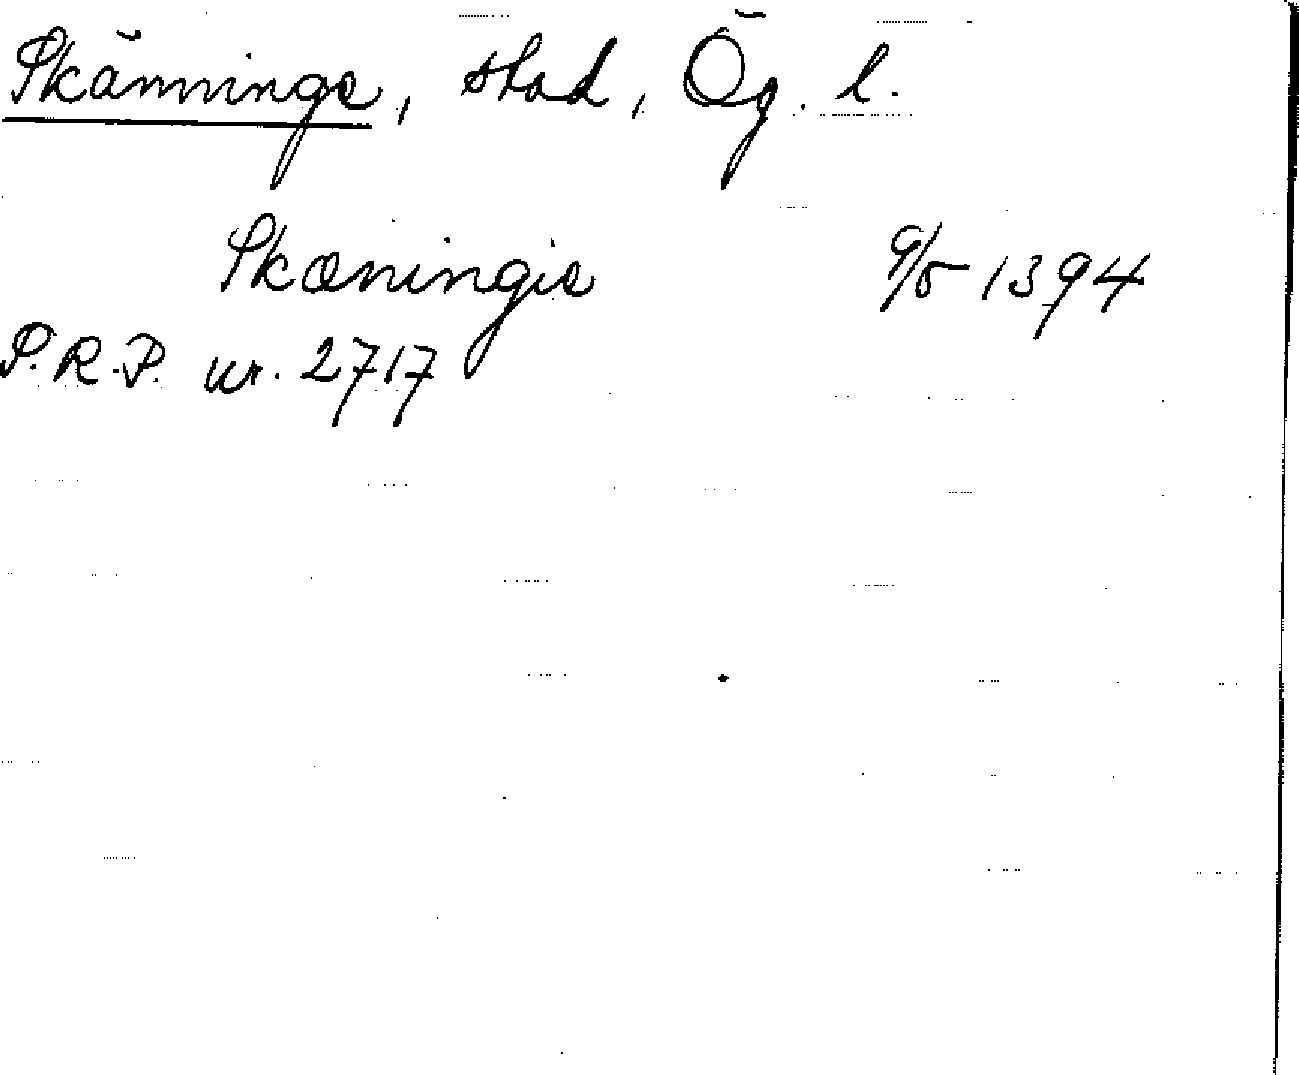 Skänninge, stad, Ög. l.
Skæningie 9/5 1394
S.R.P. nr. 2717